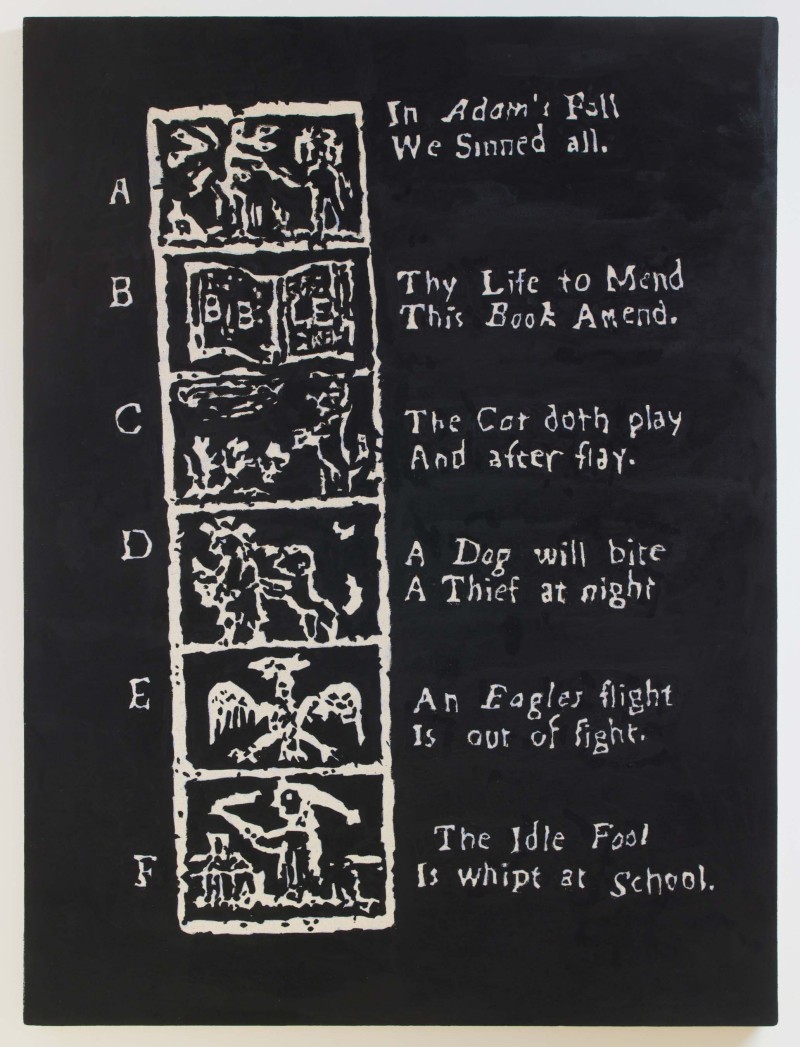 A
In Adam's Fall
We Sinned all.
B
BIBLE
Thy Life to Mend
This Book Amend.
C
The Cat doth play
And after flay.
D
A Dog will bite
A Thief at night
E
An Eagles flight
Is out of fight.
F
The Idle Fool
Is whipt at School.